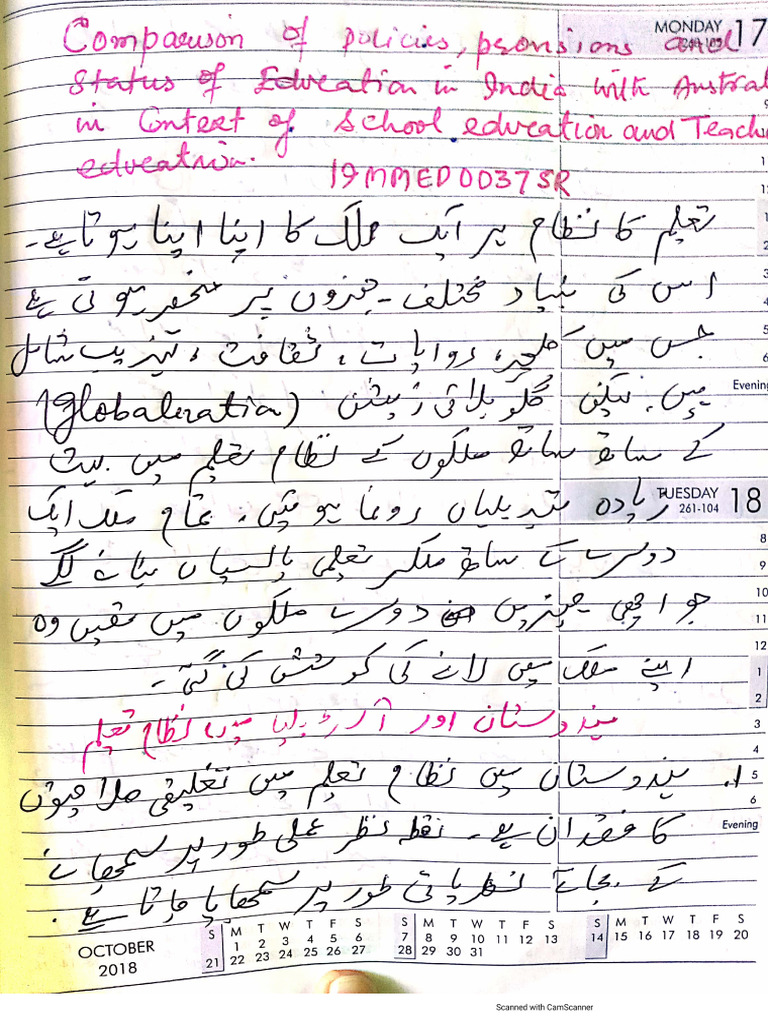 MONDAY 17
260-105
Comparison of policies, provisions and
Status of Education in India with Austral
in Context of School education and Teach
education.
19MMED0037SR
تعلیم کا نظام ہر ایک ملک کا اپنا اپنا ہوتا ہے۔
اس کی بنیاد مختلف چیزوں پر منحصر ہوتی ہے
جس میں کلچر، روایات، ثقافت، تہذیب شامل
ہیں۔ لیکن گلوبلائزیشن (Globalization)
کے ساتھ ساتھ ملکوں کے نظام تعلیم میں بہت
زیادہ تبدیلیاں رونما ہوئیں۔ تمام ملک ایک
TUESDAY 18
261-104
دوسرے کے ساتھ ملکر تعلیمی پالسیاں بنانے لگے
جو اچھی چیزیں دوسرے ملکوں میں تھیں وہ
اپنے ملک میں لانے کی کوشش کی گئی۔
ہندوستان اور آسٹریلیا میں نظام تعلیم
1. ہندوستان میں نظام تعلیم میں تخلیقی صلاحیتوں
کا فقدان ہے۔ نقطہ نظر عملی طور پر سمجھانے
کے بجائے نظریاتی طور پر سمجھایا جاتا ہے۔
Evening
Evening
OCTOBER
2018
S M T W T F S S M T W T F S S M T W T F S
1 2 3 4 5 6 7 8 9 10 11 12 13 14 15 16 17 18 19 20
21 22 23 24 25 26 27 28 29 30 31
Scanned with CamScanner